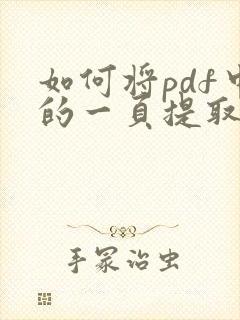 如何将pdf中
的一页提取
手冢治虫